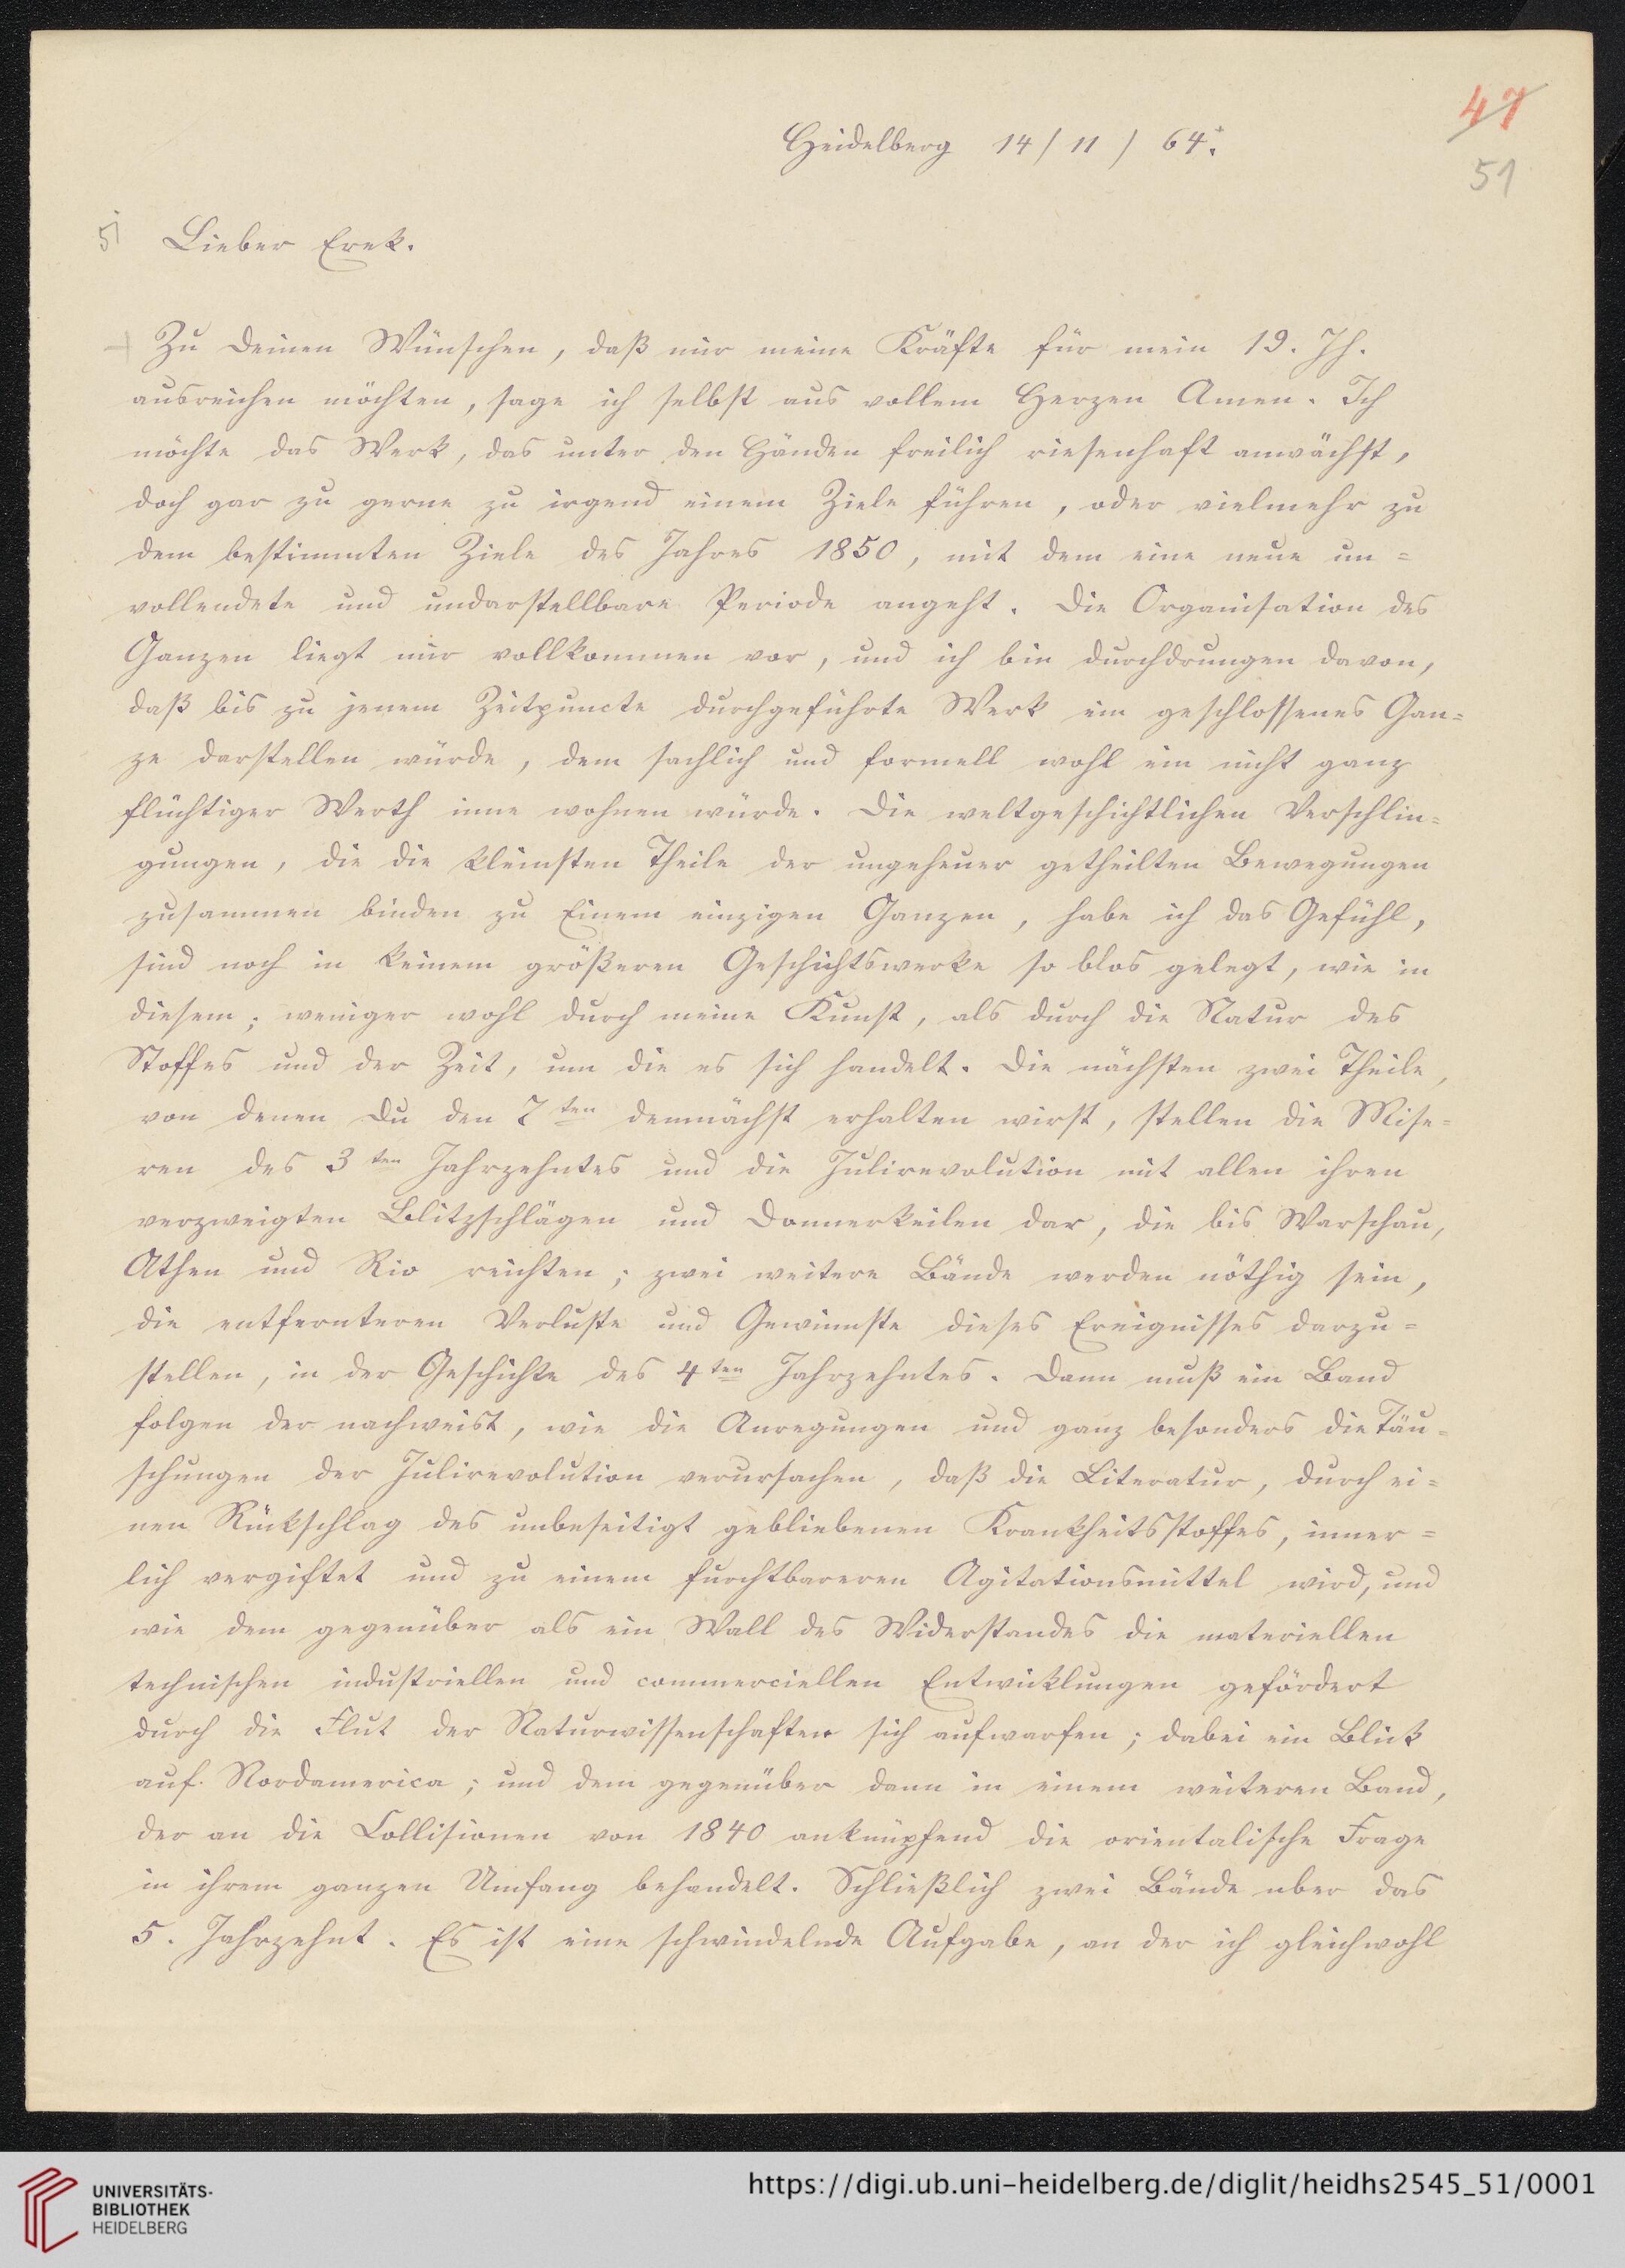 47
Heidelberg 14/11/64.
51
5) Lieber Erek.
Zu Deinen Wünschen, daß mir meine Kräfte für mein 19. Jh.
ausreichen möchten, sage ich selbst aus vollem Herzen Amen. Ich
möchte das Werk, das unter den Händen freilich riesenhaft anwächst,
doch gar zu gerne zu irgend einem Ziele führen, oder vielmehr zu
dem bestimmten Ziele des Jahres 1850, mit dem eine neue un=
vollendete und undarstellbare Periode angeht. Die Organisation des
Ganzen liegt mir vollkommen vor, und ich bin durchdrungen davon,
daß bis zu jenem Zeitpuncte durchgeführte Werk ein geschlossenes Gan=
ze darstellen würde, dem sachlich und formell wohl ein nicht ganz
flüchtiger Werth inne wohnen würde. Die weltgeschichtlichen Verschlin=
gungen, die die kleinsten Theile der ungeheuer getheilten Bewegungen
zusammen binden zu Einem einzigen Ganzen, habe ich das Gefühl,
sind noch in keinem größeren Geschichtswerke so blos gelegt, wie in
diesem; weniger wohl durch meine Kunst, als durch die Natur des
Stoffes und der Zeit, um die es sich handelt. Die nächsten zwei Theile,
von denen Du den 7ten demnächst erhalten wirst, stellen die Mise=
ren des 3ten Jahrzehntes und die Julirevolution mit allen ihren
verzweigten Blitzschlägen und Donnerkeilen dar, die bis Warschau,
Athen und Rio reichten; zwei weitere Bände werden nöthig sein,
die entfernteren Verluste und Gewinnste dieses Ereignisses darzu=
stellen, in der Geschichte des 4ten Jahrzehntes. Dann muß ein Band
folgen der nachweist, wie die Anregungen und ganz besonders die Täu=
schungen der Julirevolution verursachen, daß die Literatur, durch ei=
nen Rückschlag des unbeseitigt gebliebenen Krankheitsstoffes, inner=
lich vergiftet und zu einem furchtbareren Agitationsmittel wird, und
wie dem gegenüber als ein Wall des Widerstandes die materiellen
technischen industriellen und commerciellen Entwicklungen gefördert
durch die Flut der Naturwissenschaften sich aufwarfen; dabei ein Blick
auf Nordamerica; und dem gegenüber dann in einem weiteren Band,
der an die Collisionen von 1840 anknüpfend die orientalische Frage
in ihrem ganzen Umfang behandelt. Schließlich zwei Bände uber das
5. Jahrzehnt. Es ist eine schwindelnde Aufgabe, an der ich gleichwohl
UNIVERSITÄTS-
BIBLIOTHEK
HEIDELBERG
https://digi.ub.uni-heidelberg.de/diglit/heidhs2545_51/0001